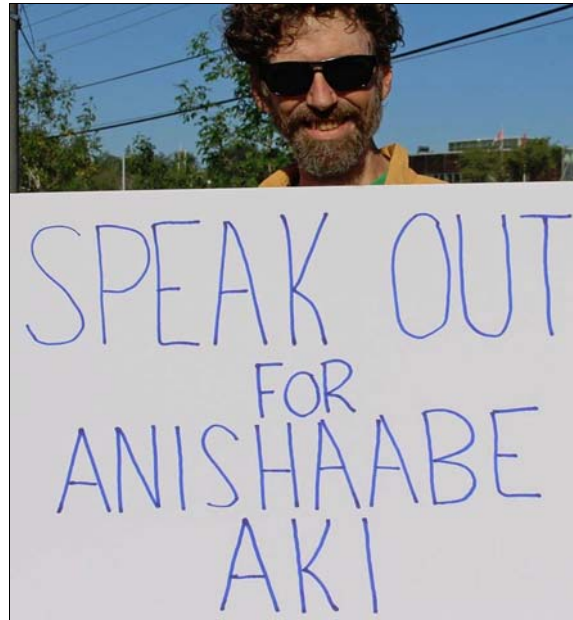 SPEAK OUT
FOR
ANISHAABE
AKI